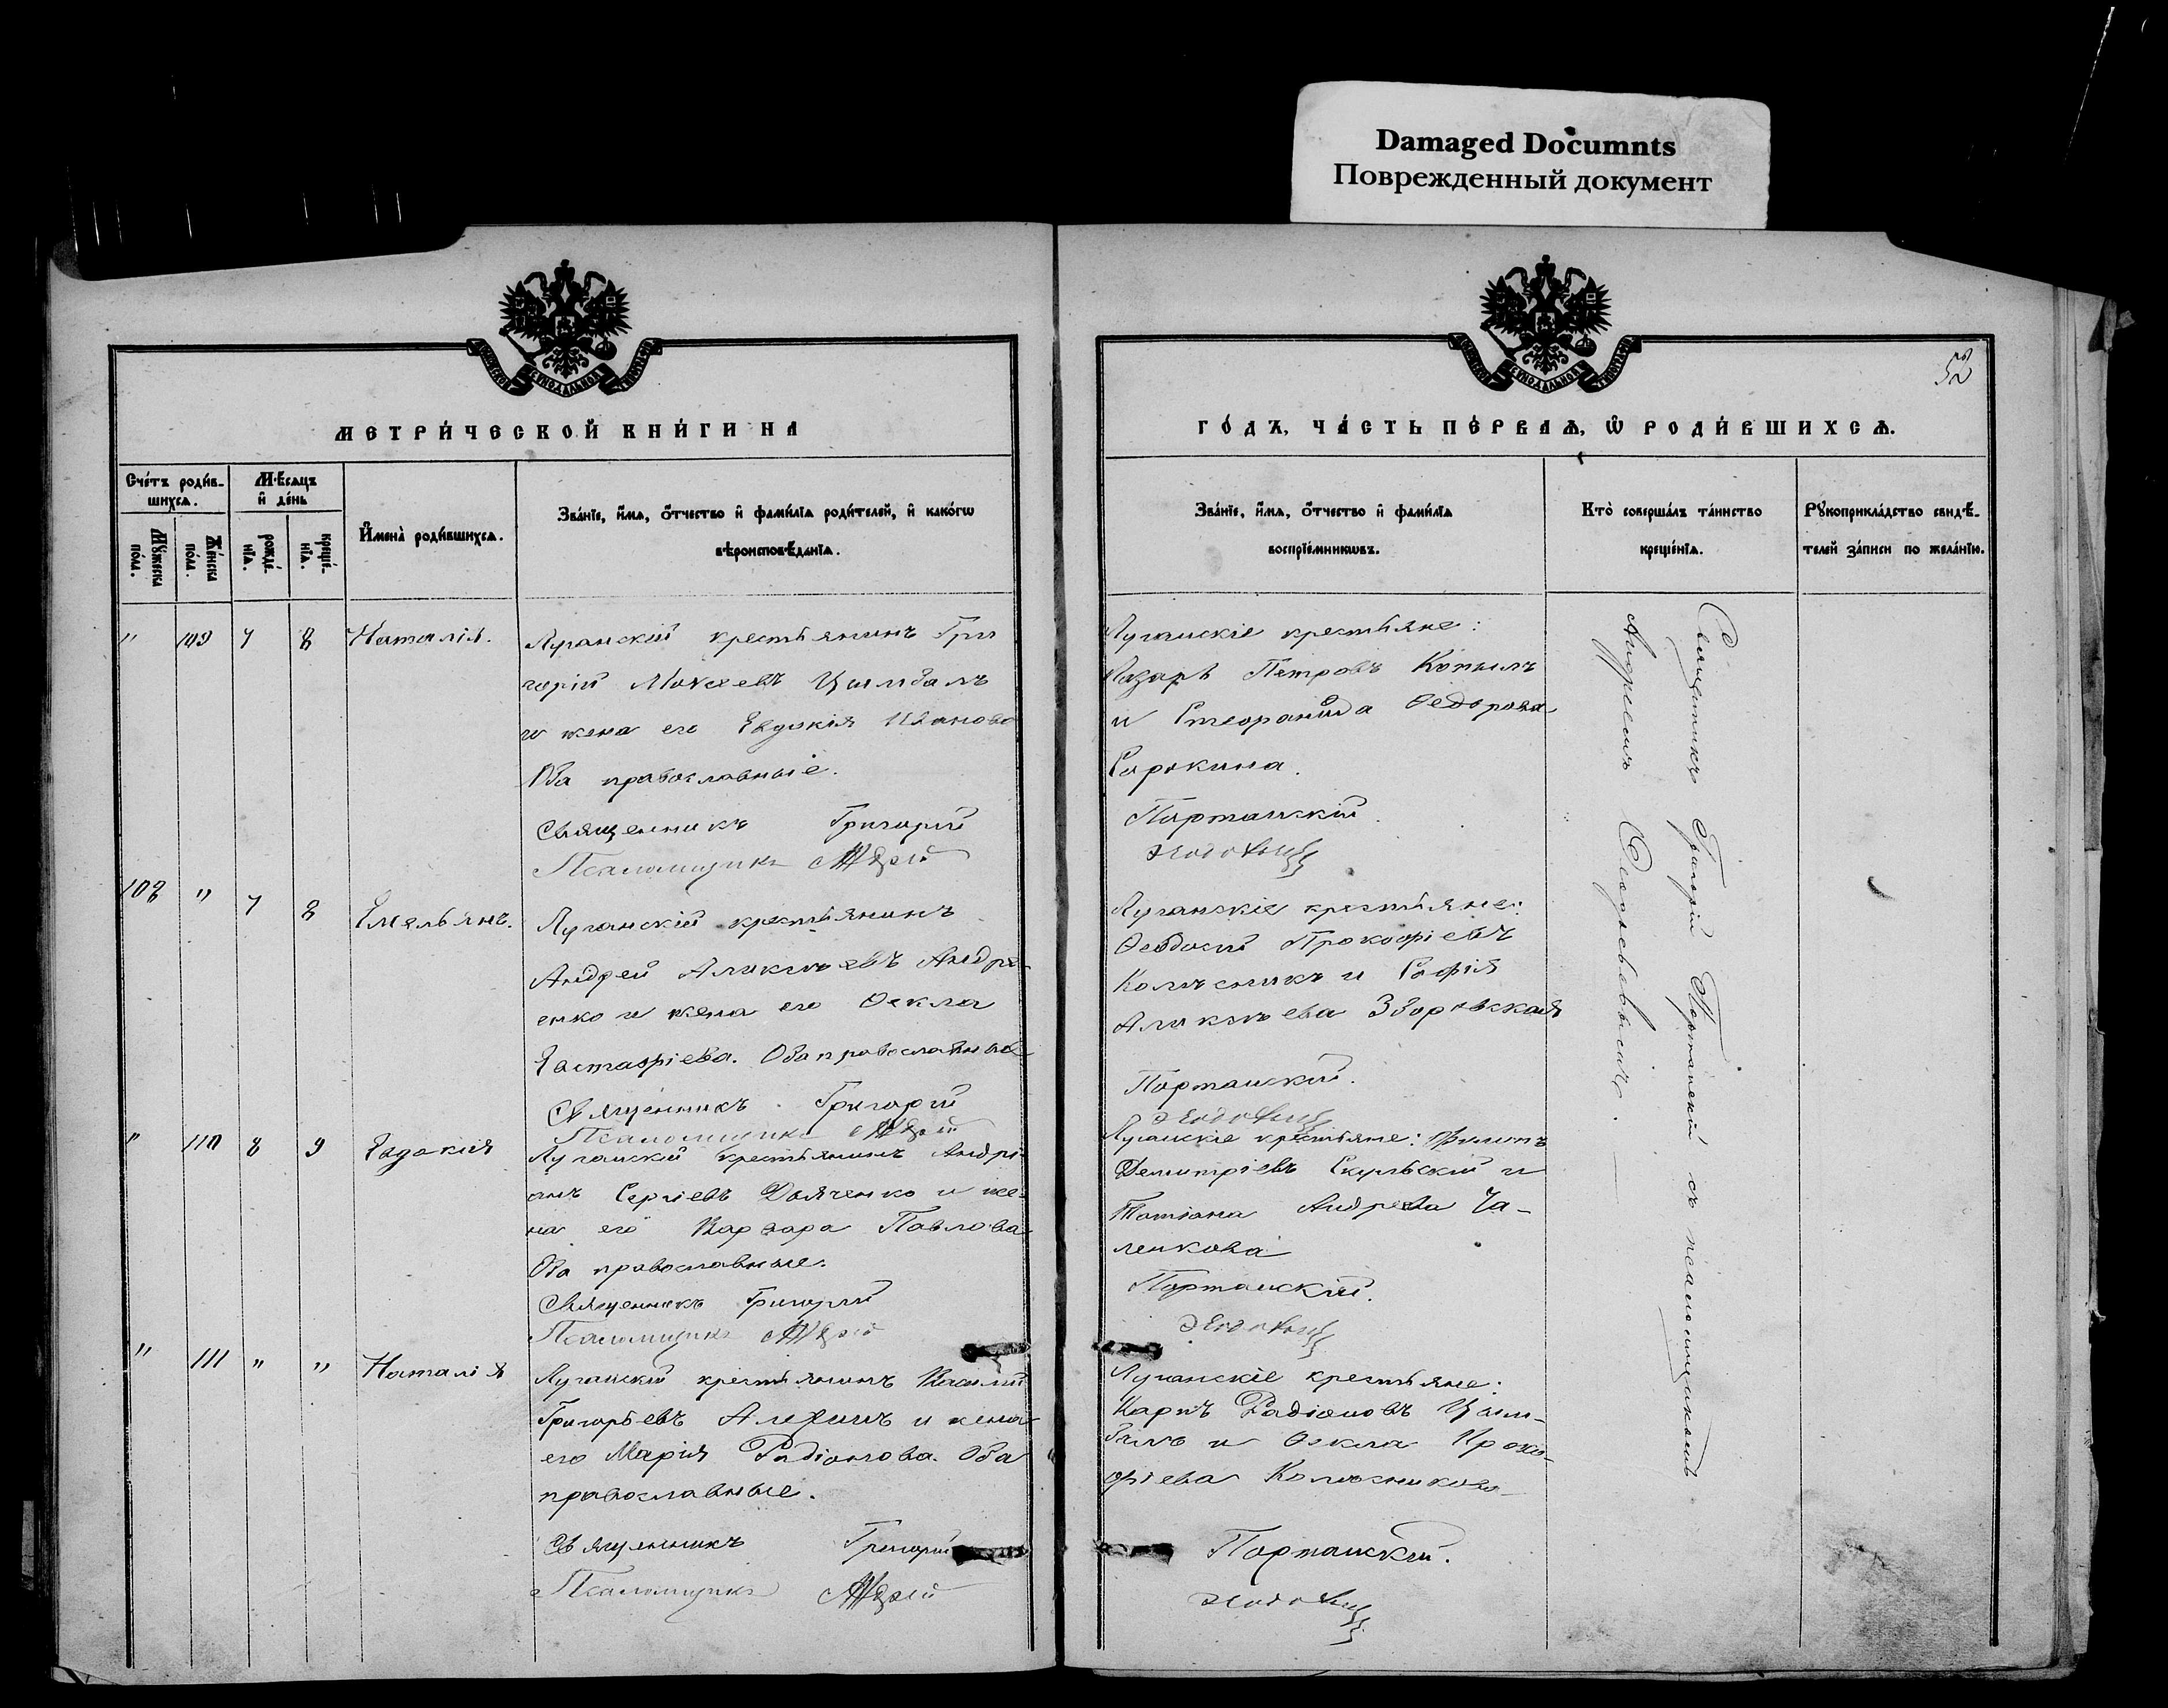 Damaged Documnts
Поврежденный документ
52
МЕТРИ́ЧЕСКОЙ КНИ́ГИ НА
ГО́ДЪ, ЧА́СТЬ ПЕ́РВАѦ, Ѡ҆ РОДИ́ВШИХСѦ.
Сче́тъ роди́в-
шихсѧ.
Мꙋ́жеска по́ла.
Же́нска по́ла.
Мѣ́сѧцъ и҆ де́нь
рожде́-нїѧ.
креще́-нїѧ.
И҆мена̀ роди́вшихсѧ.
Зва́нїе, и҆́мѧ, ѻ҆́тчество и҆ фами́лїѧ роди́телей, и҆ како́гѡ
вѣроисповѣ́данїѧ.
Зва́нїе, и҆́мѧ, ѻ҆́тчество и҆ фами́лїѧ
воспрїе́мникѡвъ.
Кто̀ соверша́лъ та́инство
креще́нїѧ.
Рꙋкоприкла́дство свидѣ́-
телей за́писи по жела́нїю.
" 109 7 8 Наталія.
Луганскій крестьянинъ Гри
горій Моисеевъ Цымбалъ
и жена его Евдокія Иванова
Оба православные.
Священникъ Григорій
Псаломщикъ
Луганскіе крестьяне:
Лазарь Петровъ Копылъ
и Стефанида Ѳедорова
Сорокина.
Порташскій.
108 " 7 8 Емельянъ.
Луганскій крестьянинъ
Андрей Алексѣевъ Андре-
енко и жена его Ѳекла
Евстафіева. Оба православные
Священникъ Григорій
Псаломщикъ
Луганскіе крестьяне:
Ѳеодосій Прокофіевъ
Колѣсникъ и Софія
Алексѣева Зворовская
Порташскій.
" 110 8 9 Евдокія
Луганскій крестьянинъ Андрі-
анъ Сергіевъ Дьяченко и же-
на его Варвара Павлова
Оба православные.
Священникъ Григорій
Псаломщикъ
Луганскіе крестьяне: Филипъ
Демитріевъ Скульскій и
Татіана Андреева Ча-
ленкова
Порташскій.
" 111 " " Наталія
Луганскій крестьянинъ Василій
Григорьевъ Алехинъ и жена
его Марія Радіонова. Оба
православные.
Священникъ Григорій
Псаломщикъ
Луганскіе крестьяне:
Карпъ Радіоновъ Цым-
балъ и Ѳекла Проко-
фіева Колѣсникова
Порташскій.
Священникъ Григорій Порташскій съ псаломщикомъ
Андреемъ